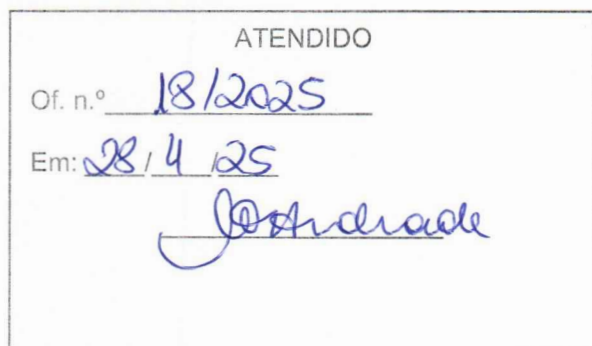 ATENDIDO
Of. n.º 18/2025
Em: 28/4/25
Andrade